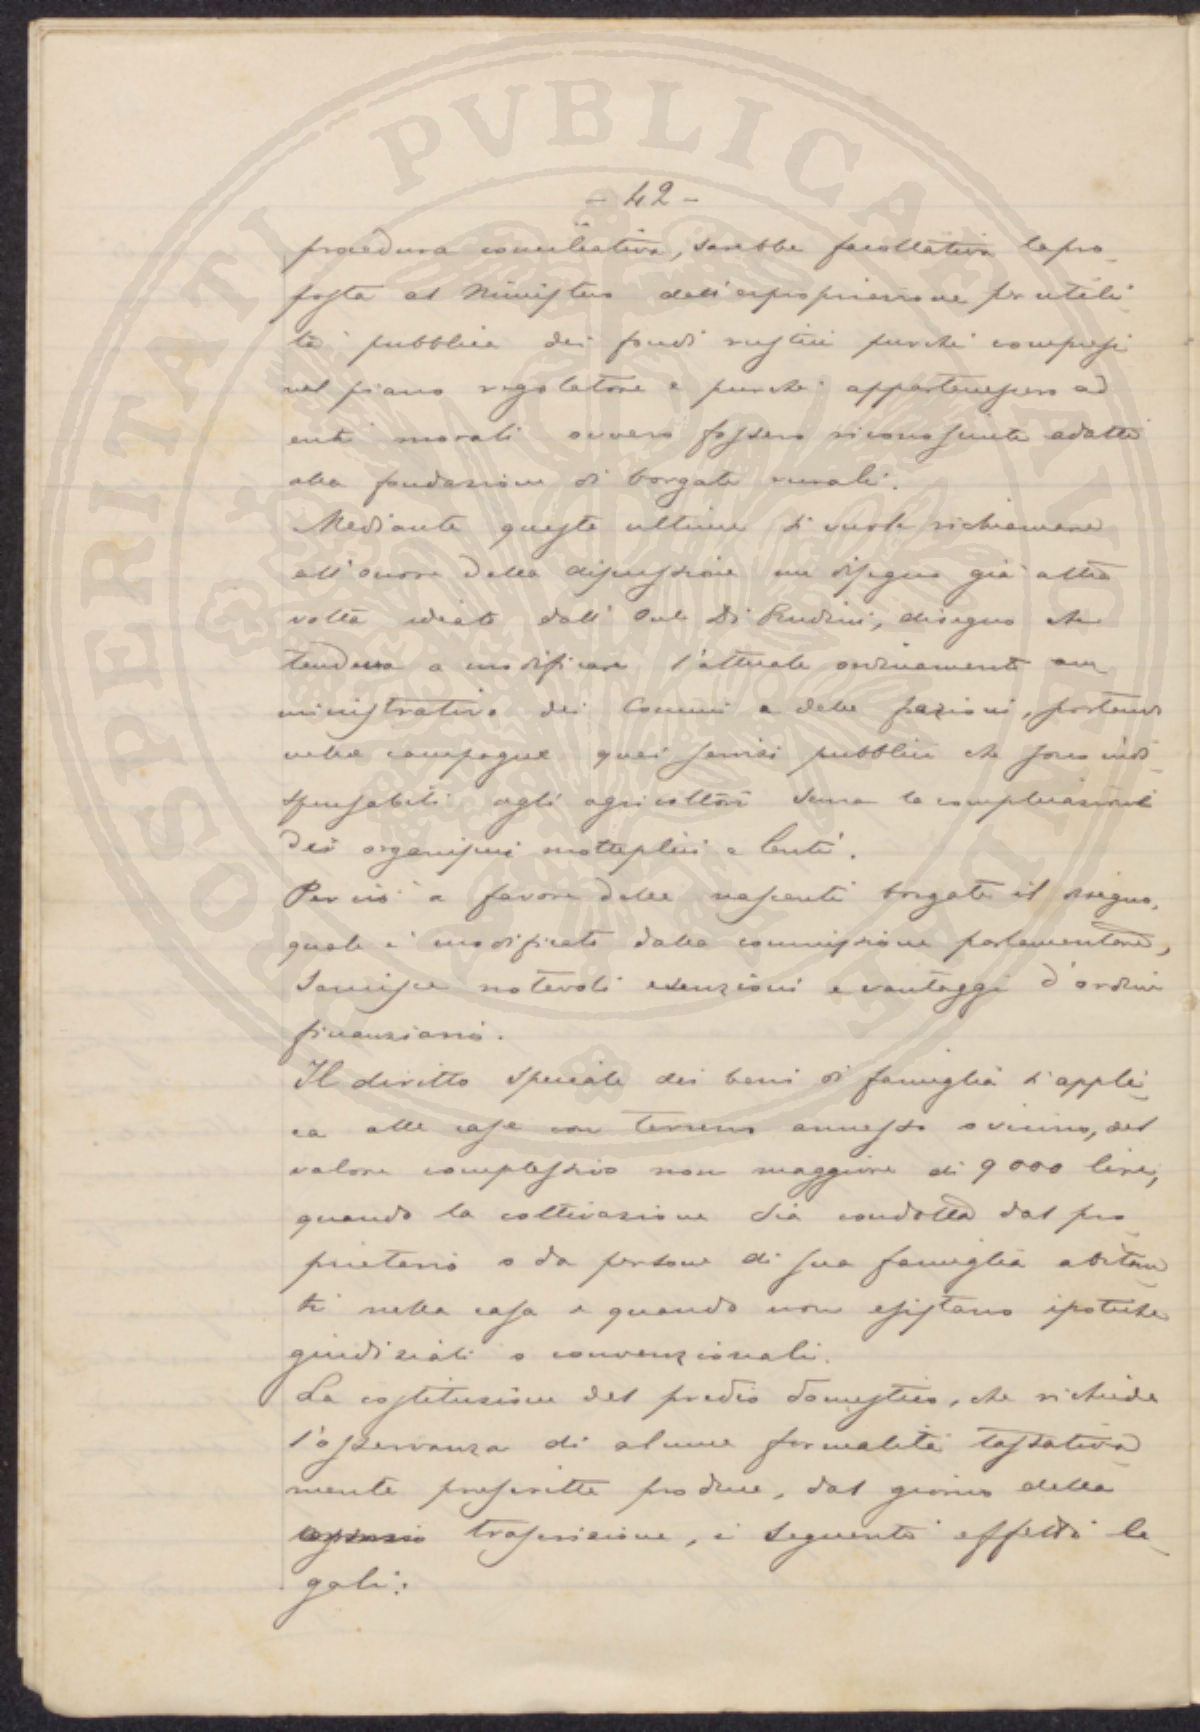 - 42 -
procedura conciliativa, sarebbe facoltativa la pro-
posta al Ministero dell'espropriazione per utili-
tà pubblica dei fondi rustici purché compresi
nel piano regolatore e purché appartenessero ad
enti morali ovvero fossero riconosciuti adatti
alla fondazione di borgate rurali.
Mediante queste ultime si vuole richiamare
all'onore della discussione un disegno già altra
volta ideato dall'On.le Di Rudinì, disegno che
tendeva a modificare l'attuale ordinamento am
ministrativo dei Comuni e delle frazioni, portando
nelle campagne quei servizi pubblici che sono indi-
spensabili agli agricoltori senza le complicazioni
dei organismi molteplici e lenti.
Per ciò a favore delle nascenti borgate il disegno,
quale è modificato dalla commissione parlamentare,
sancisce notevoli esenzioni e vantaggi d'ordine
finanziario.
Il diritto speciale dei beni di famiglia si appli-
ca alle case con terreno annesso o vicino, del
valore complessivo non maggiore di 9000 lire,
quando la coltivazione sia condotta dal pro-
prietario o da persone di sua famiglia abitan-
ti nella casa e quando non esistano ipoteche
giudiziali o convenzionali.
La costituzione del predio domestico, che richiede
l'osservanza di alcune formalità tassativa-
mente prescritte produce, dal giorno della
trascrizione, i seguenti effetti le-
gali:
PROSPERITATI PVBLICAE AVGENDAE